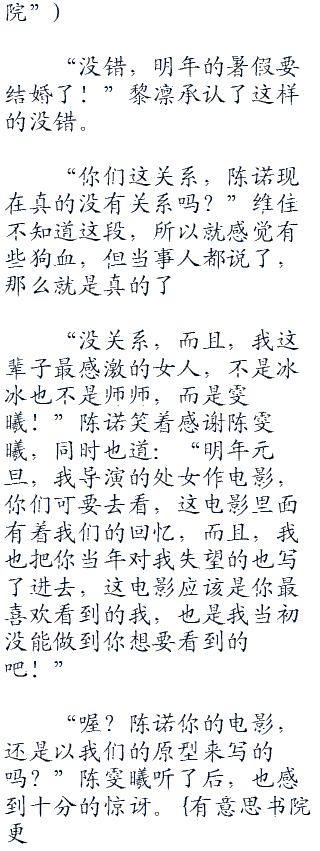 院”）
“没错，明年的暑假要
结婚了！”黎凛承认了这样
的没错。
“你们这关系，陈诺现
在真的没有关系吗？”维住
不知道这段，所以就感觉有
些狗血，但当事人都说了，
那么就是真的了
“没关系，而且，我这
辈子最感激的女人，不是冰
冰也不是师师，而是雯
曦！”陈诺笑着感谢陈雯
曦，同时也道：“明年元
旦，我导演的处女作电影，
你们可要去看，这电影里面
有着我们的回忆，而且，我
也把你当年对我失望的也写
了进去，这电影应该是你最
喜欢看到的我，也是我当初
没能做到你想要看到的
吧！”
“喔？陈诺你的电影，
还是以我们的原型来写的
吗？”陈雯曦听了后，也感
到十分的惊讶。{有意思书院
更